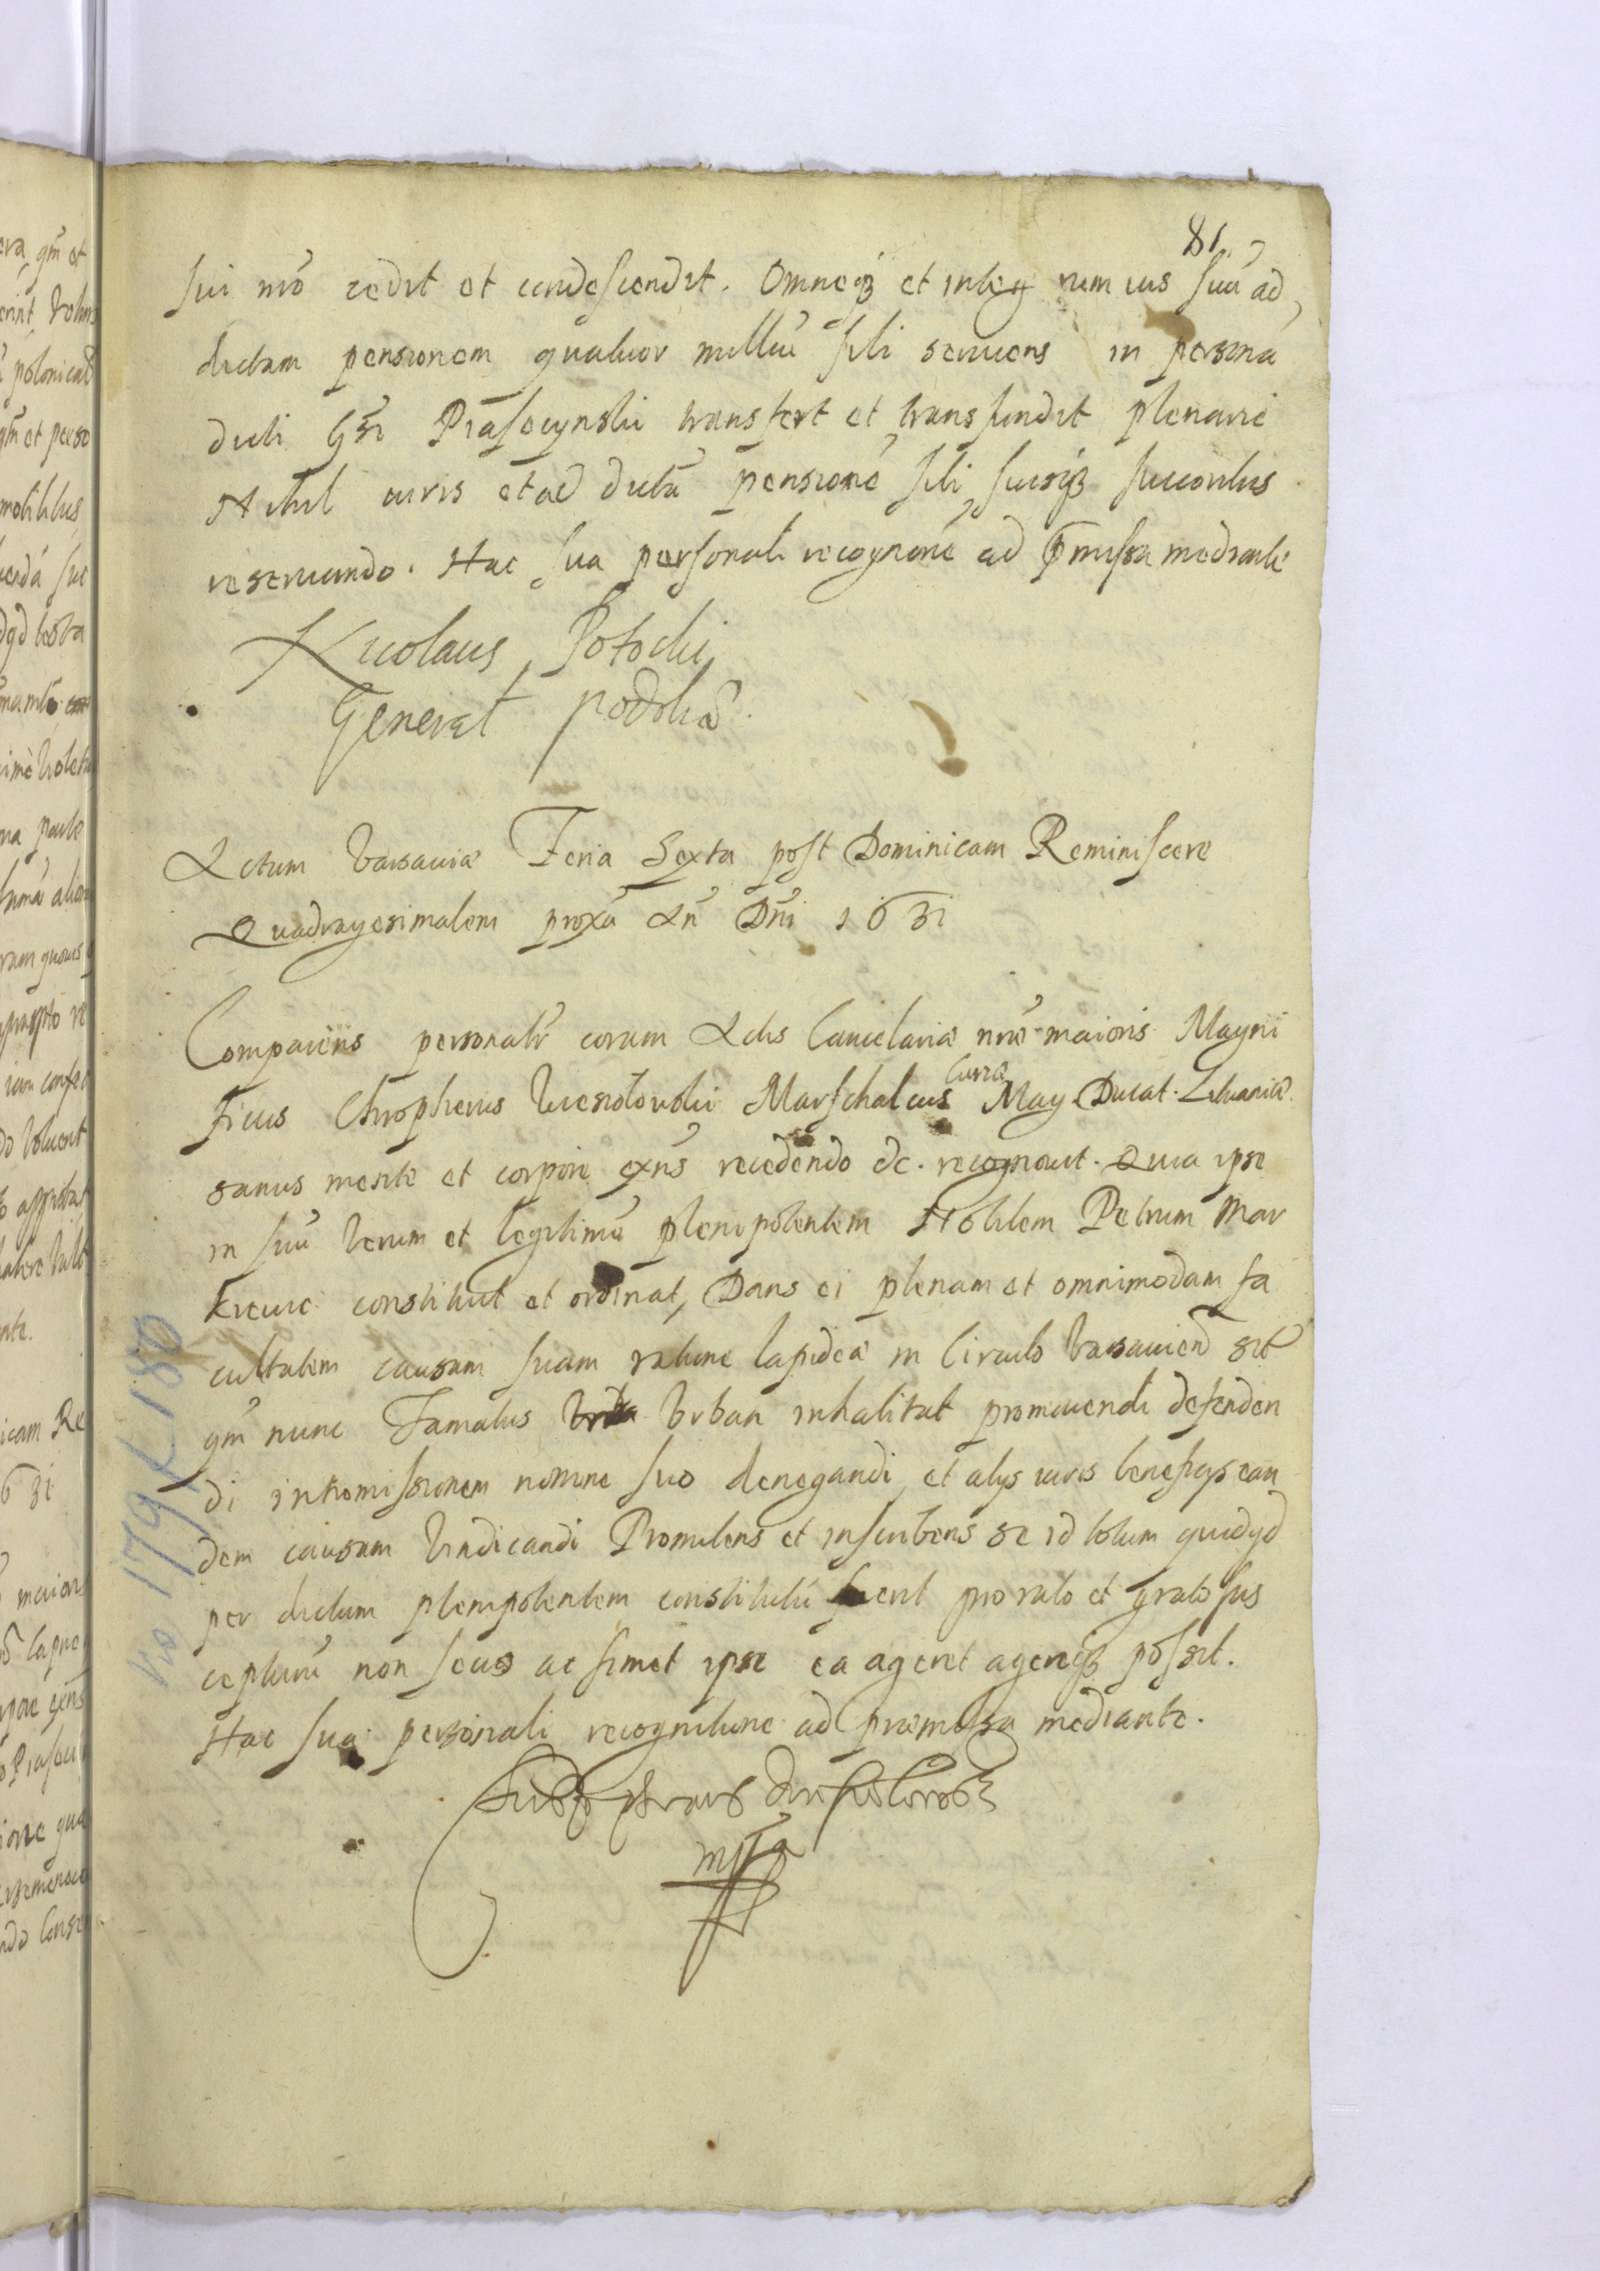 81
sui nro cedit et condescendit. Omneqz et integ rum ius suu ad
dictam pensionem qualuor milliu sibi seruiens in persona
dicti Gsi Prasocynski transfert et transfundit plenarie
Nihil iuris et ad dicta pensione sibi suisqz succoribus
reseruando. Hac sua personali recognone ad pmissa mediante
Nicolaus Potocki
General Podoliae
Actum Varsauiae Feria Sexta post Dominicam Reminiscere
Quadragesimalem proxa An Dni 1631
Comparens personalr coram Actis Cancelariae nrae maioris Magni
Curiae
ficus Chrophorus Wiesiolowski Marschalcus Mag. Ducat. Lituaniae
sanus mente et corpore exns recedendo &c. recognouit. Quia ipse
in suu verum et legitimu plenipotentem Nobilem Petrum Mar
constituit et ordinat, Dans ei plenam et omnimodam fa
cultatem causam suam ratione lapideae in Circulo Varsauien sit
qm nunc Famatus Vrban inhabitat promouendi defenden
di intromissionem nomine suo denegandi, et alys iuris beneficys ean
dem causam Vindicandi Promittens et inscribens se id totum quidqd
per dictum plenipotentem constitutu fuerit pro rato et grato sus
cepturu non secus ac simet ipse ea ageret agereqz possit.
Hac sua personali recognitione ad praemissa mediante.
mpa
No 179 f. 180